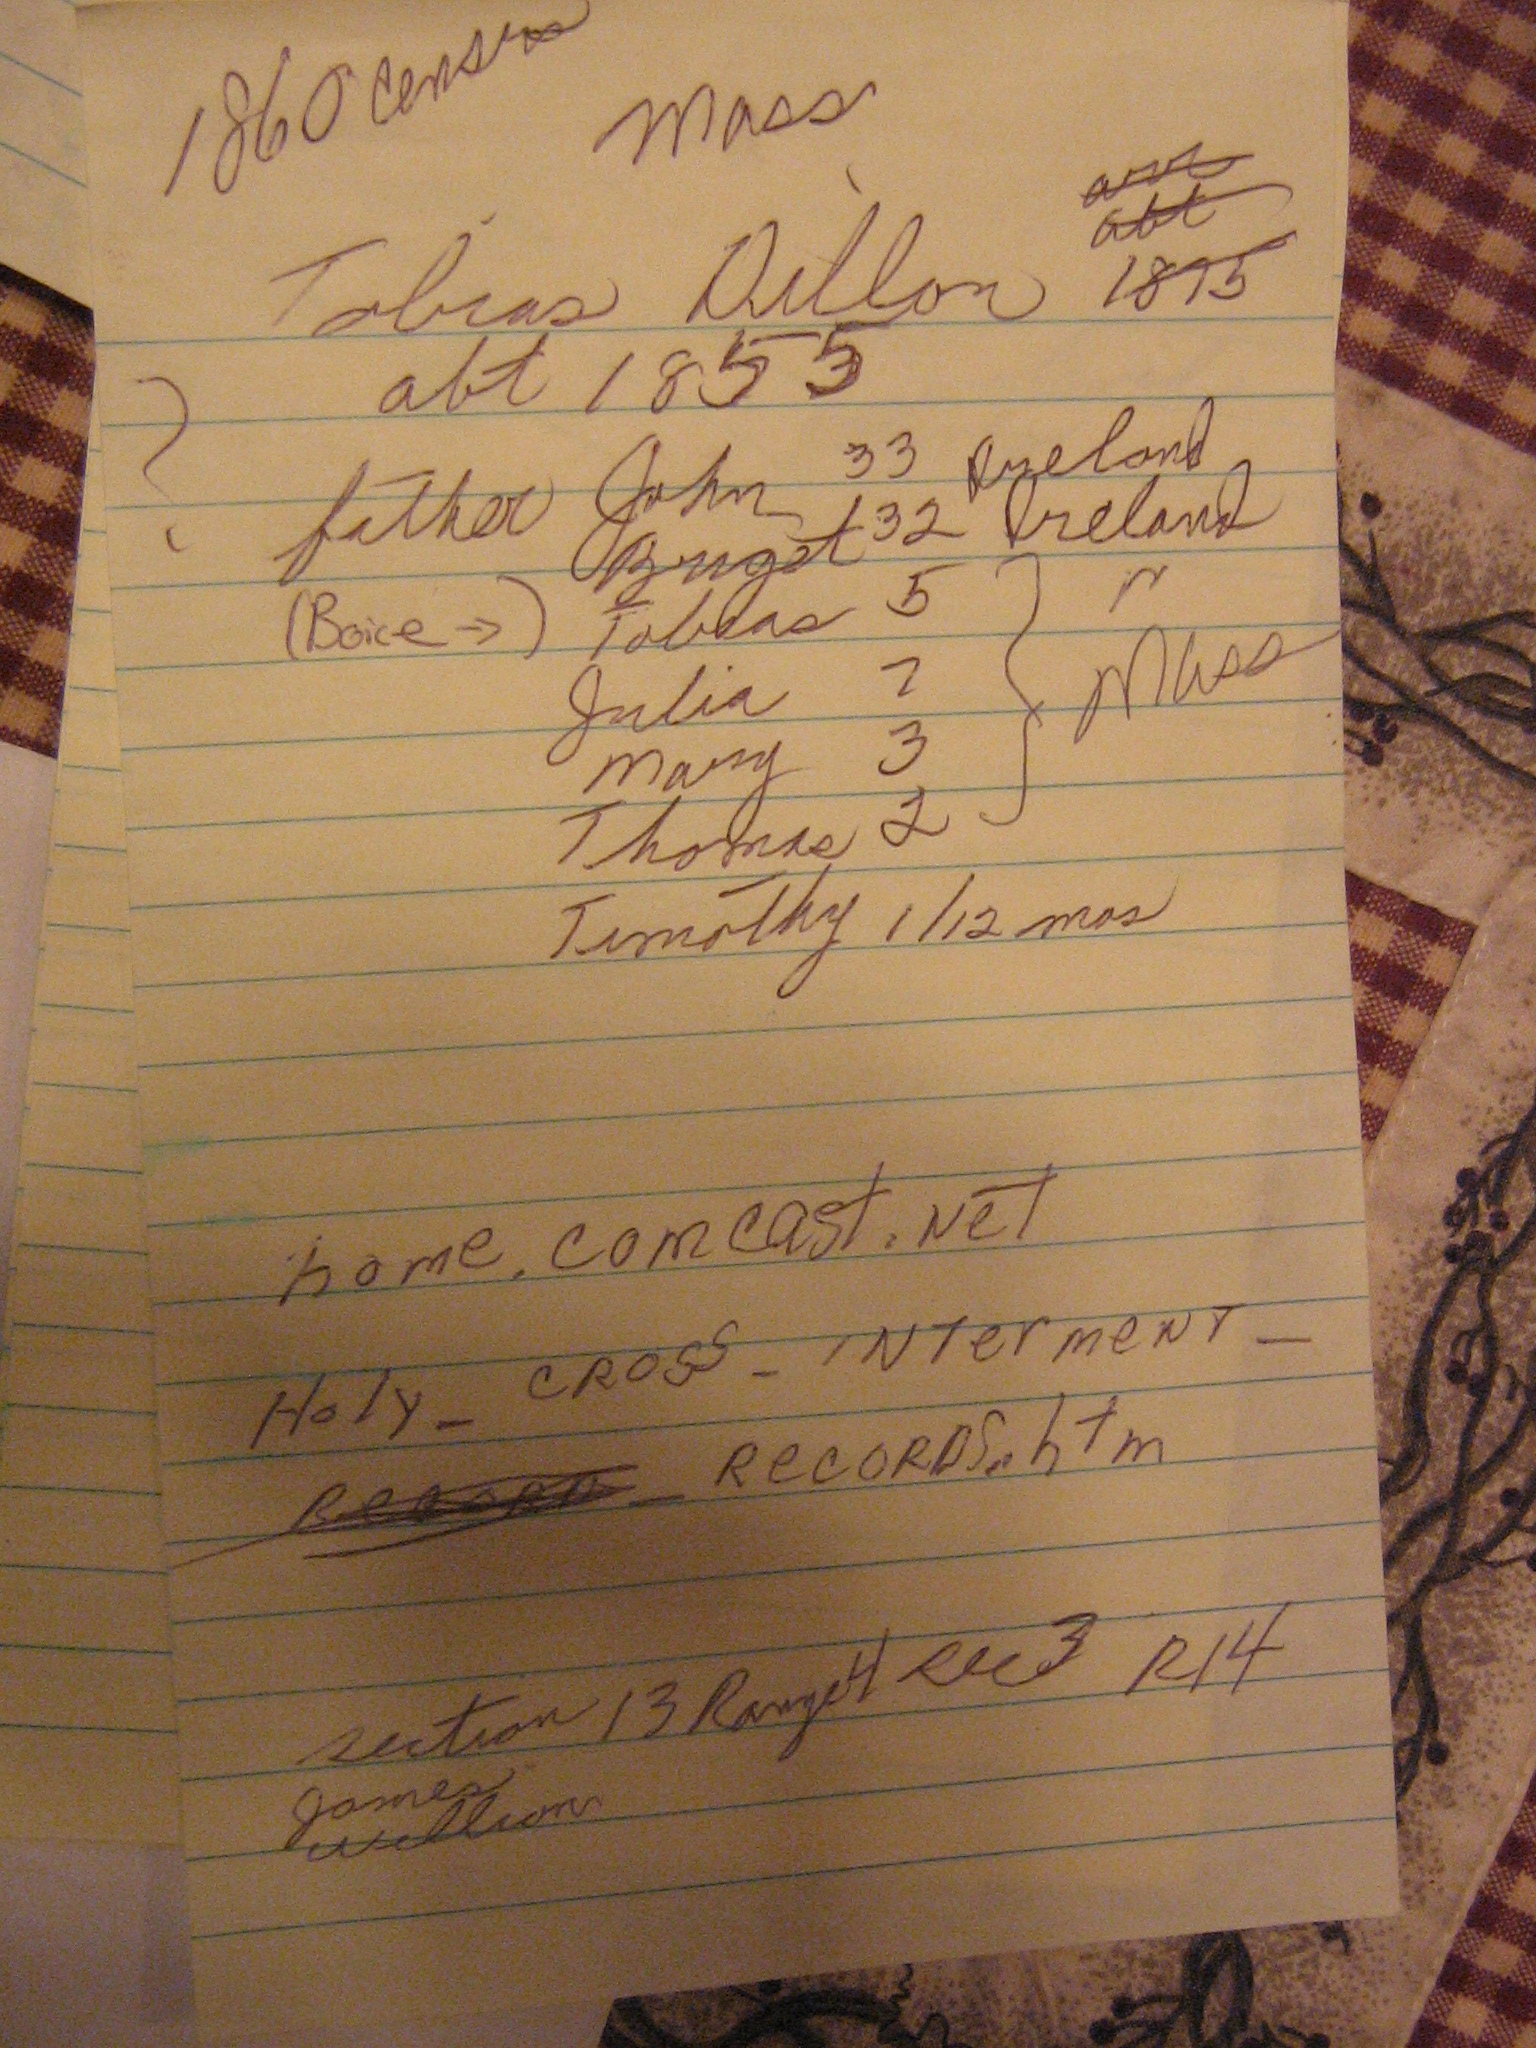 1860 census
Mass
Tobias Dillon
arr
abt
1875
abt 1855
father John 33 Ireland
Briget 32 Ireland
(Boice →) Tobias 5 "
Julia 7 Mass
Mary 3
Thomas 2
Timothy 1/12 mos
home.comcast.net
Holy_cross_interment_
Record_Records.htm
section 13 Range 4 sec 3 R14
James
William